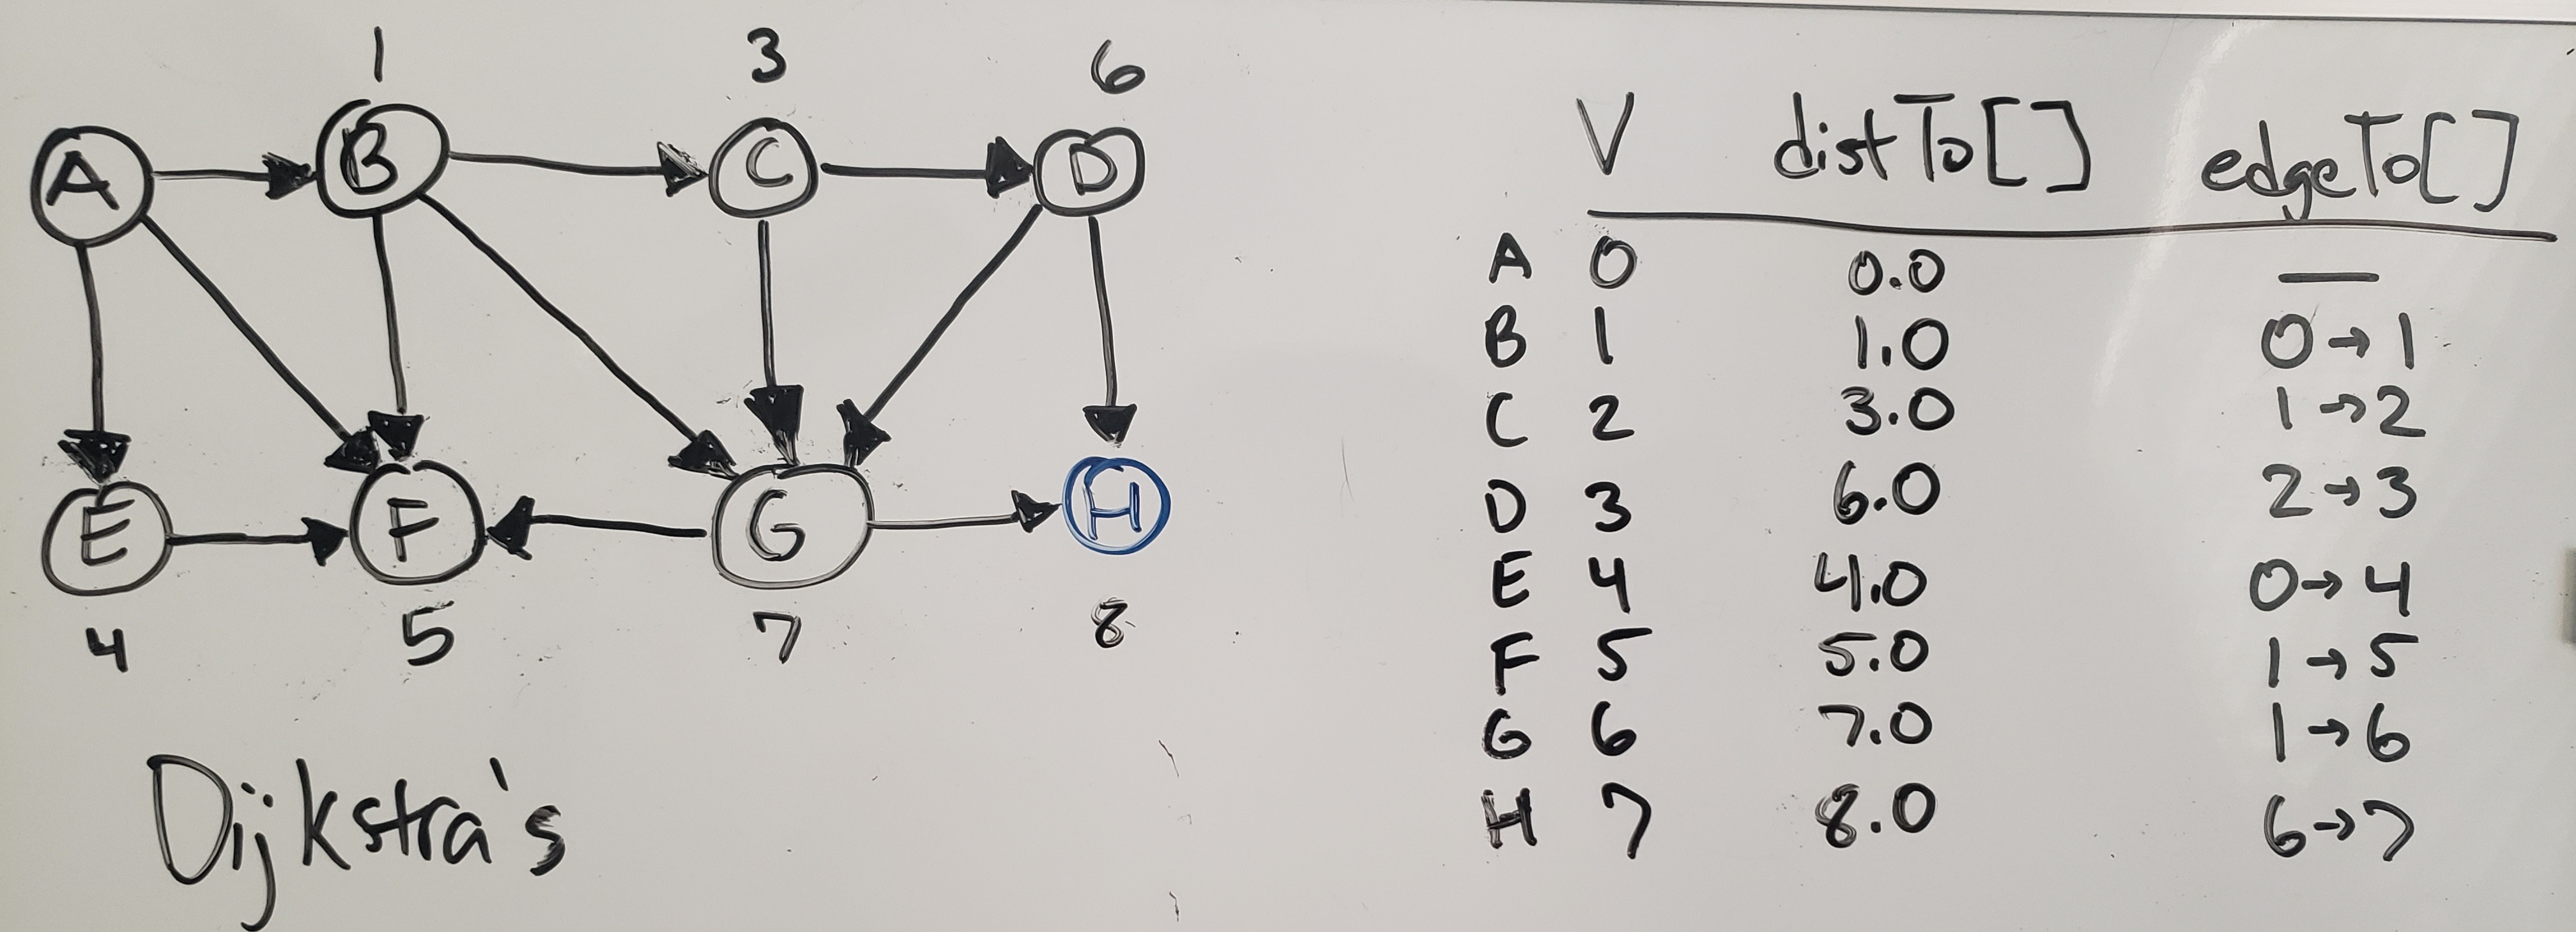 1 3 6
A B C D
E F G H
4 5 7 8
Dijkstra's
V distTo[] edgeTo[]
A 0 0.0 —
B 1 1.0 0→1
C 2 3.0 1→2
D 3 6.0 2→3
E 4 4.0 0→4
F 5 5.0 1→5
G 6 7.0 1→6
H 7 8.0 6→7